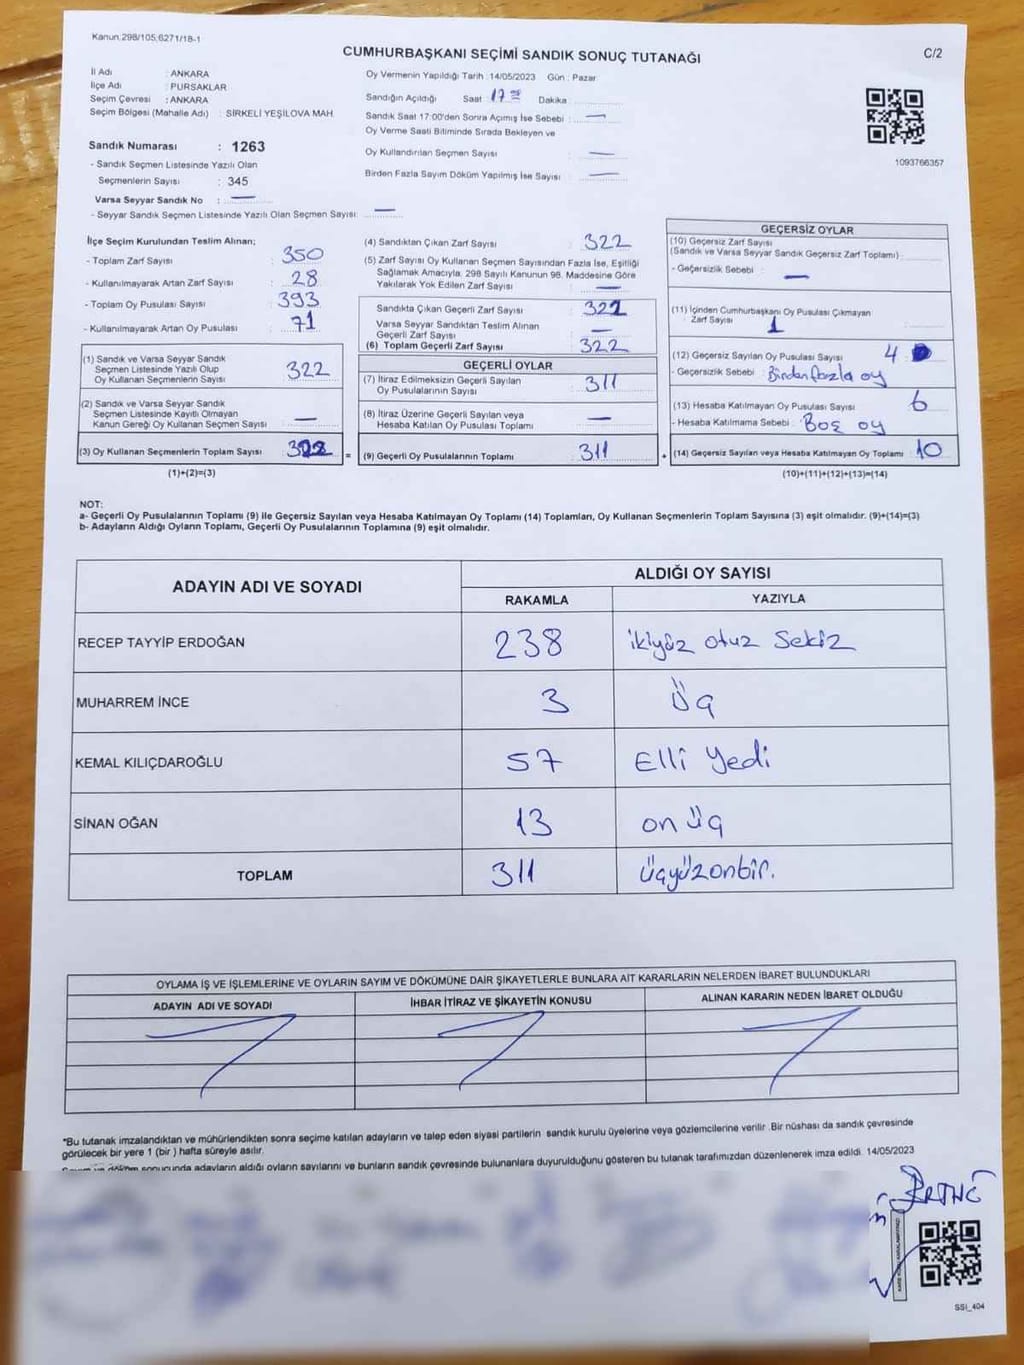 Kanun.298/105,6271/18-1
CUMHURBAŞKANI SEÇİMİ SANDIK SONUÇ TUTANAĞI
C/2
İl Adı : ANKARA
İlçe Adı : PURSAKLAR
Seçim Çevresi : ANKARA
Seçim Bölgesi (Mahalle Adı) : SİRKELİ YEŞİLOVA MAH
Oy Vermenin Yapıldığı Tarih : 14/05/2023 Gün : Pazar
Sandığın Açıldığı Saat : 17 00 Dakika :
Sandık Saat 17:00'den Sonra Açımış İse Sebebi : —
Oy Verme Saati Bitiminde Sırada Bekleyen ve
Oy Kullandırılan Seçmen Sayısı : —
Birden Fazla Sayım Döküm Yapılmış İse Sayısı : —
1093766357
Sandık Numarası : 1263
- Sandık Seçmen Listesinde Yazılı Olan
Seçmenlerin Sayısı : 345
Varsa Seyyar Sandık No : —
- Seyyar Sandık Seçmen Listesinde Yazılı Olan Seçmen Sayısı : —
İlçe Seçim Kurulundan Teslim Alınan;
- Toplam Zarf Sayısı : 350
- Kullanılmayarak Artan Zarf Sayısı : 28
- Toplam Oy Pusulası Sayısı : 393
- Kullanılmayarak Artan Oy Pusulası : 71
(1) Sandık ve Varsa Seyyar Sandık
Seçmen Listesinde Yazılı Olup
Oy Kullanan Seçmenlerin Sayısı : 322
(2) Sandık ve Varsa Seyyar Sandık
Seçmen Listesinde Kayıtlı Olmayan
Kanun Gereği Oy Kullanan Seçmen Sayısı : —
(3) Oy Kullanan Seçmenlerin Toplam Sayısı : 322
(1)+(2)=(3)
(4) Sandıktan Çıkan Zarf Sayısı : 322
(5) Zarf Sayısı Oy Kullanan Seçmen Sayısından Fazla İse, Eşitliği
Sağlamak Amacıyla. 298 Sayılı Kanunun 98. Maddesine Göre
Yakılarak Yok Edilen Zarf Sayısı : —
Sandıkta Çıkan Geçerli Zarf Sayısı : 322
Varsa Seyyar Sandıktan Teslim Alınan
Geçerli Zarf Sayısı : —
(6) Toplam Geçerli Zarf Sayısı : 322
GEÇERLİ OYLAR
(7) İtiraz Edilmeksizin Geçerli Sayılan
Oy Pusulalarının Sayısı : 311
(8) İtiraz Üzerine Geçerli Sayılan veya
Hesaba Katılan Oy Pusulası Toplamı : —
= (9) Geçerli Oy Pusulalarının Toplamı : 311
GEÇERSİZ OYLAR
(10) Geçersiz Zarf Sayısı
(Sandık ve Varsa Seyyar Sandık Geçersiz Zarf Toplamı) :
- Geçersizlik Sebebi : —
(11) İçinden Cumhurbaşkanı Oy Pusulası Çıkmayan
Zarf Sayısı : 1
(12) Geçersiz Sayılan Oy Pusulası Sayısı : 4
- Geçersizlik Sebebi : Birden fazla oy
(13) Hesaba Katılmayan Oy Pusulası Sayısı : 6
- Hesaba Katılmama Sebebi : Boş oy
+ (14) Geçersiz Sayılan veya Hesaba Katılmayan Oy Toplamı : 10
(10)+(11)+(12)+(13)=(14)
NOT:
a- Geçerli Oy Pusulalarının Toplamı (9) ile Geçersiz Sayılan veya Hesaba Katılmayan Oy Toplamı (14) Toplamları, Oy Kullanan Seçmenlerin Toplam Sayısına (3) eşit olmalıdır. (9)+(14)=(3)
b- Adayların Aldığı Oyların Toplamı, Geçerli Oy Pusulalarının Toplamına (9) eşit olmalıdır.
ADAYIN ADI VE SOYADI
ALDIĞI OY SAYISI
RAKAMLA YAZIYLA
RECEP TAYYİP ERDOĞAN 238 ikiyüz otuz sekiz
MUHARREM İNCE 3 üç
KEMAL KILIÇDAROĞLU 57 Elli yedi
SİNAN OĞAN 13 on üç
TOPLAM 311 üçyüzonbir.
OYLAMA İŞ VE İŞLEMLERİNE VE OYLARIN SAYIM VE DÖKÜMÜNE DAİR ŞİKAYETLERLE BUNLARA AİT KARARLARIN NELERDEN İBARET BULUNDUKLARI
ADAYIN ADI VE SOYADI İHBAR İTİRAZ VE ŞİKAYETİN KONUSU ALINAN KARARIN NEDEN İBARET OLDUĞU
*Bu tutanak imzalandıktan ve mühürlendikten sonra seçime katılan adayların ve talep eden siyasi partilerin sandık kurulu üyelerine veya gözlemcilerine verilir. Bir nüshası da sandık çevresinde
görülecek bir yere 1 (bir ) hafta süreyle asılır.
döküm sonucunda adayların aldığı oyların sayılarını ve bunların sandık çevresinde bulunanlara duyurulduğunu gösteren bu tutanak tarafımızdan düzenlenerek imza edildi. 14/05/2023
SSI_404